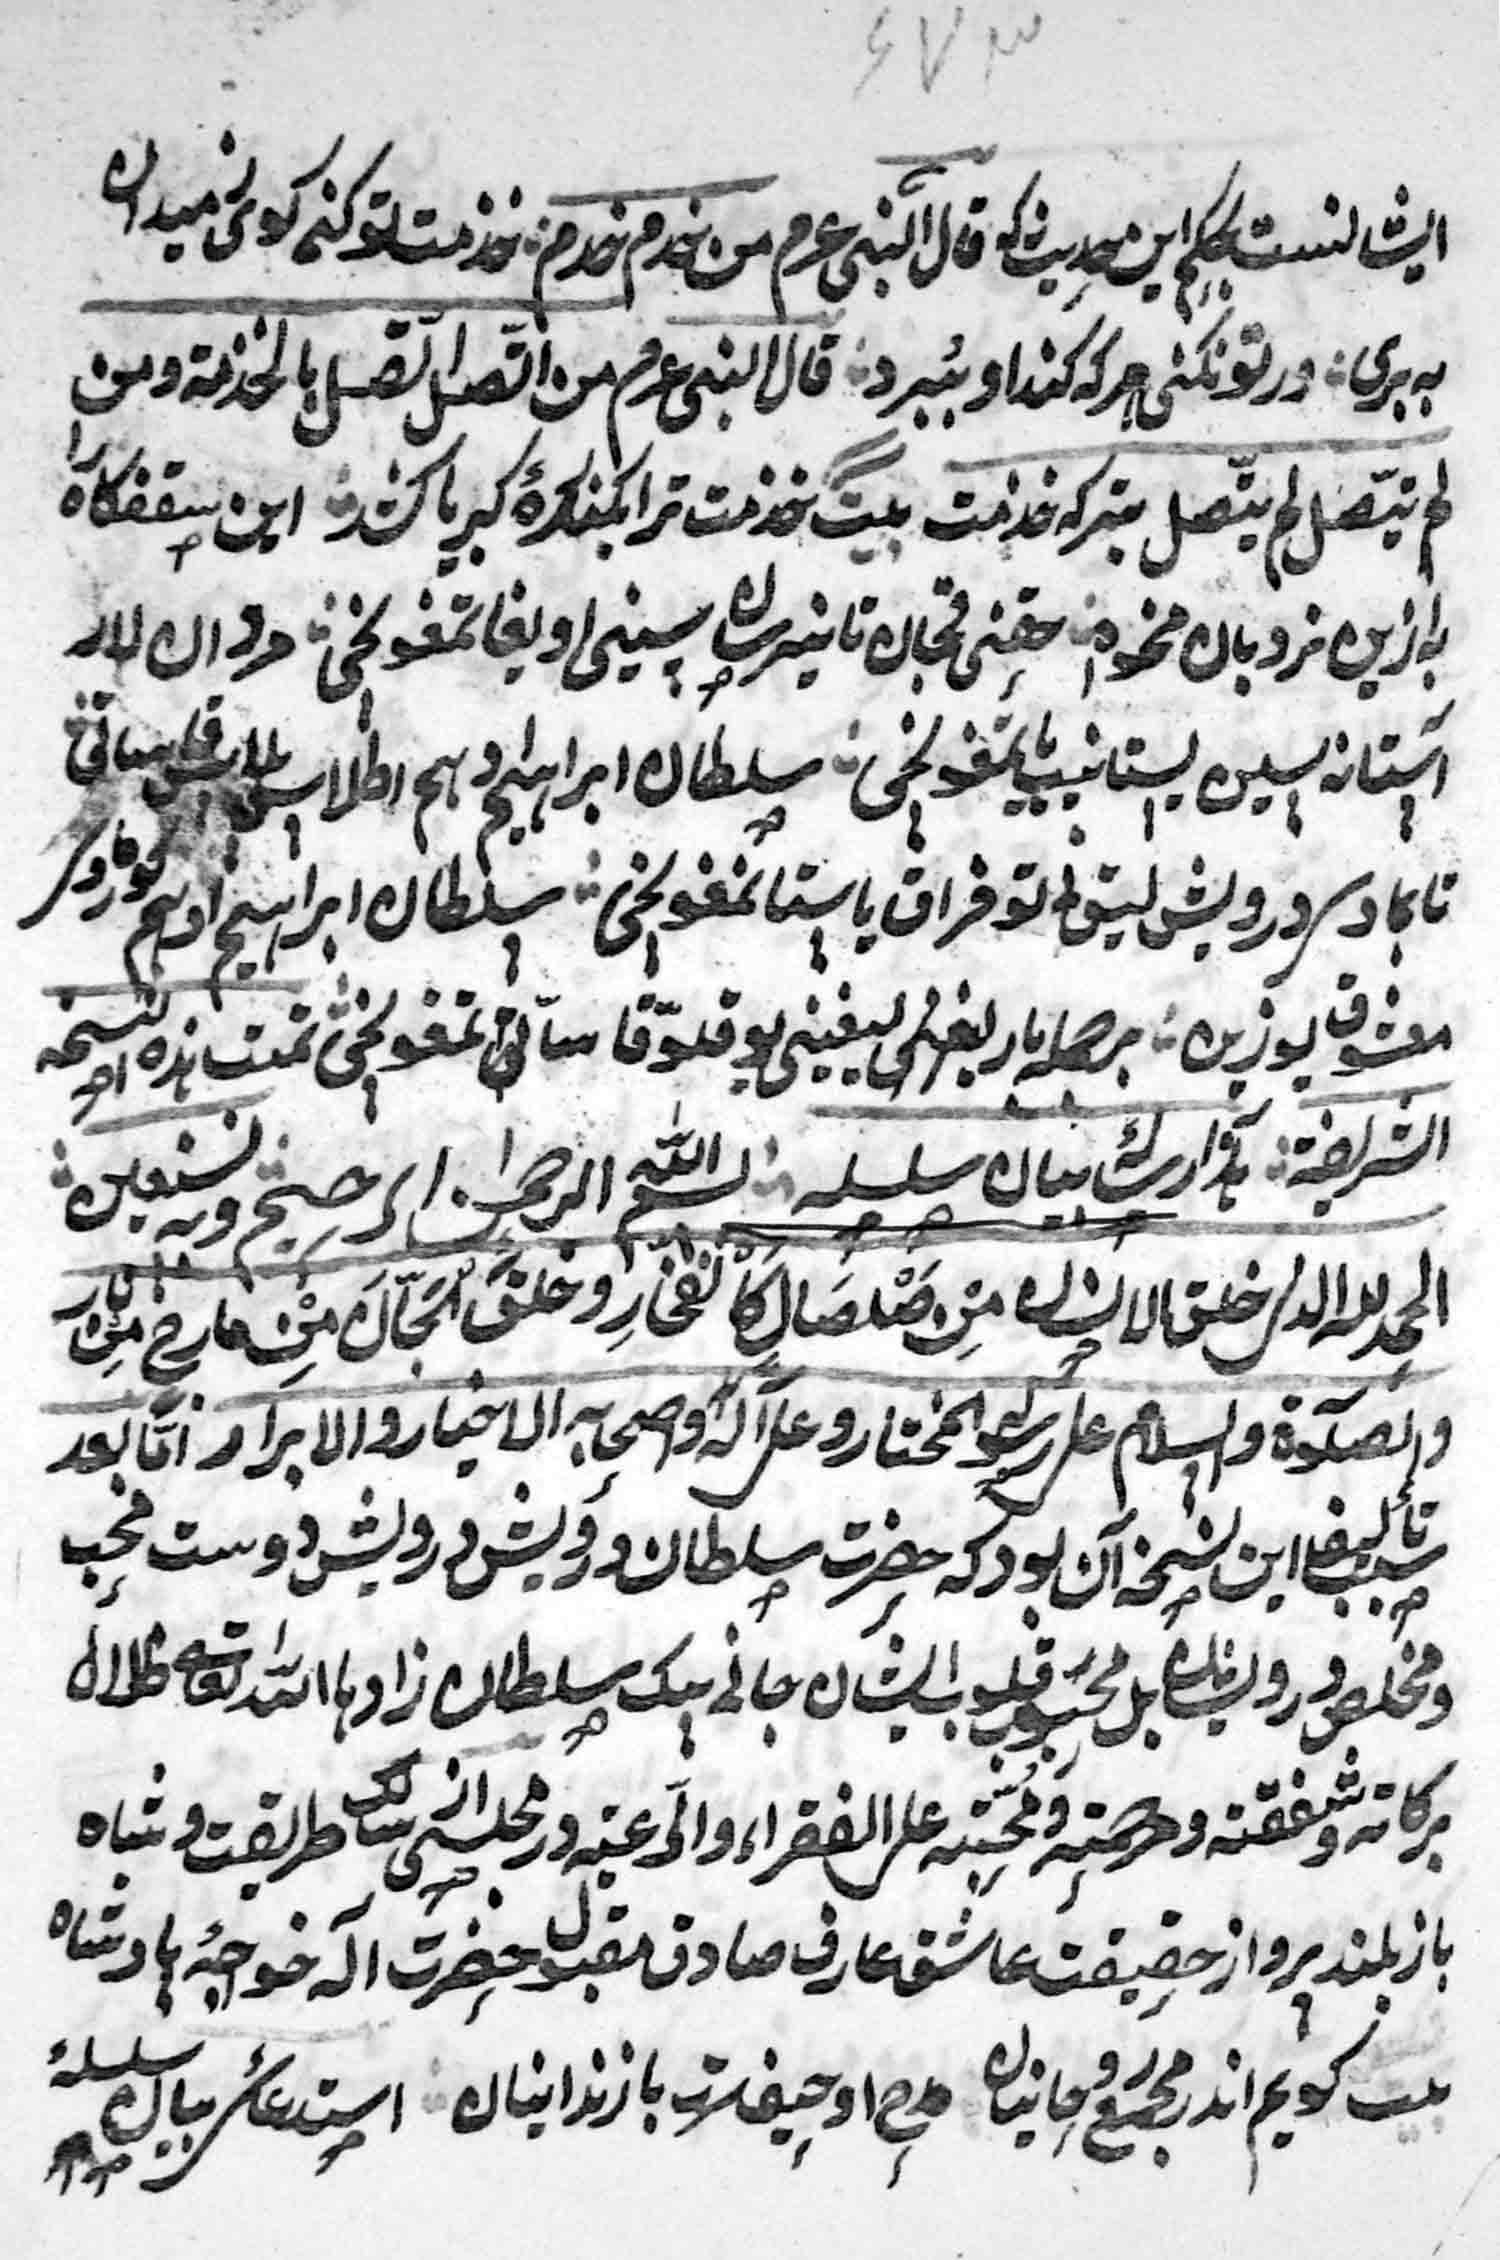 ۶۷۳
ایشانست بحکم این حدیث که قال النبی عرم من خدم خدم خدمت تو کنی کوی ز میدان
به بری ور تو نکنی هر که کند او ببرد قال النبی عرم من اتّصل اتّصل بالخدمة و من
لم یتّصل لم یتّصل بترک خذمت بیت خدمت ترا بکنکرهٔ کبریا کشد این سقفکاه را
به ازین نردبان مخواه حقنی قجان تانیرسان سینی اویغاتمغونچی مردان لار
آستانه سین یستانیب یاتمغونچی سلطان ابراهیم ادهم اطلاس
تابمادی درویش لیق نی توفراق یاستانمغونچی سلطان ابراهیم ادهم
معشوق یوزین بر صله یار یغلی یوقلوّقا ساتمغونچی تمت هذه النسخة
الشریفة هذا رسالهٔ بیان سلسله بسم الله الرحمن الرحیم و به نستعین
الحمد لله الذی خلق الانسان مِن صَلْصَالٍ كَالْفَخَّارِ و خلقَ الْجَانَّ مِنْ مارج مِن نار
و الصلوة و السلام علی رسوله المختار و علی آله و اصحابه الاخیار و الابرار امّا بعد
سبب تألیف این نسخه آن بود که حضرت سلطان درویش درویش دوست محب
و مخلص درویشان بل محبوب قلوب ایشان جانی بیک سلطان زاد الله تعالی ظلال
برکاته و شفقته و رحمته و محبّته علی الفقراء و الرعیة در مجلسی از سالک طریقت و شاه
باز بلند پرواز حقیقت عاشق عارف صادق مقبول حضرت اله خواجهٔ پادشاه
بیت کویم اندر مجمع روحانیان مدح او حیفست با زندانیان استدعای بیان سلسلهٔ